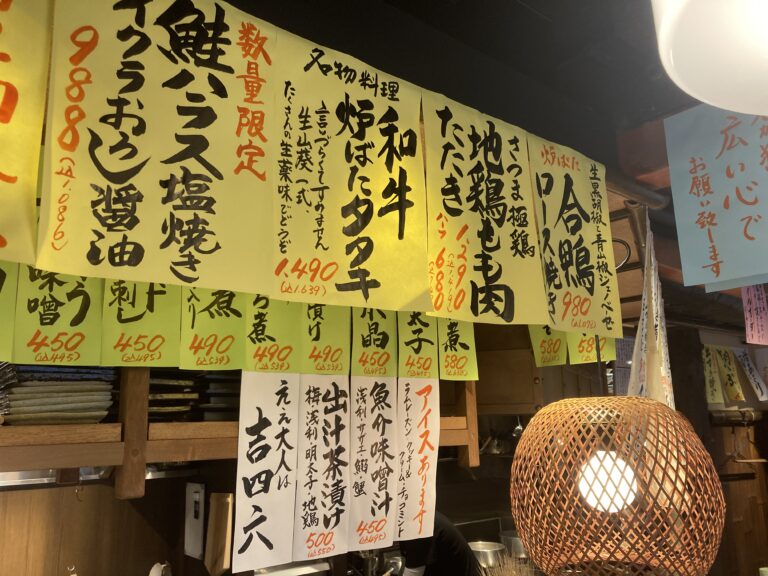 数量限定
鮭ハラス塩焼き
イクラおろし醤油
988
(込1.086)
名物料理
和牛
炉ばたタタキ
言いづらくてすみません
生山葵一式
たくさんの生薬味でどうぞ
1.490
(込1.639)
さつま極鶏
地鶏もも肉
たたき
1.290
ハーフ680
炉ばた
合鴨
ロース焼き
980
味噌
450
(込495)
刺し
450
(込495)
煮
490
(込539)
煮
490
(込539)
漬け
490
(込539)
水晶
450
(込495)
太子
450
(込495)
煮
580
580
580
アイスあります
ラムレーズン・クッキー&クリーム・チョコミント
魚介味噌汁
浅利・サザエ・鰯・蟹
450
(込495)
出汁茶漬け
梅・浅利・明太子・地鶏
500
(込550)
ええ大人は
吉四六
広い心で
お願い致します